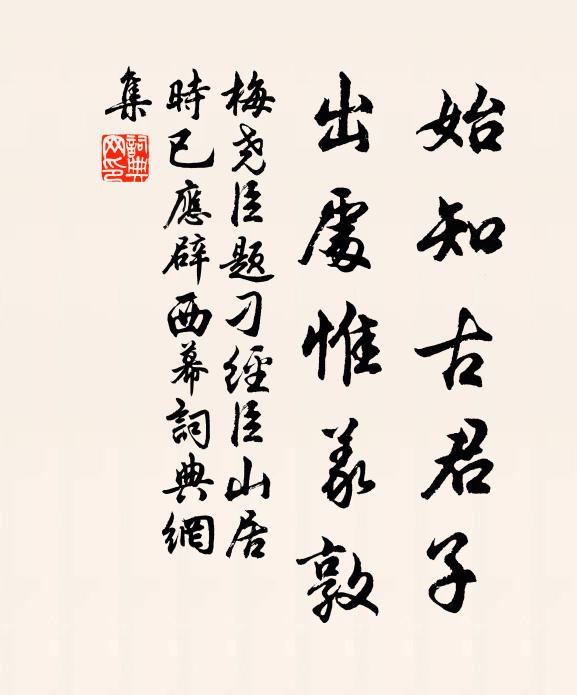 始知古君子
出處惟義敦
梅堯臣題刁經臣山居
時已應辟西幕詞典網
集
詞典網印